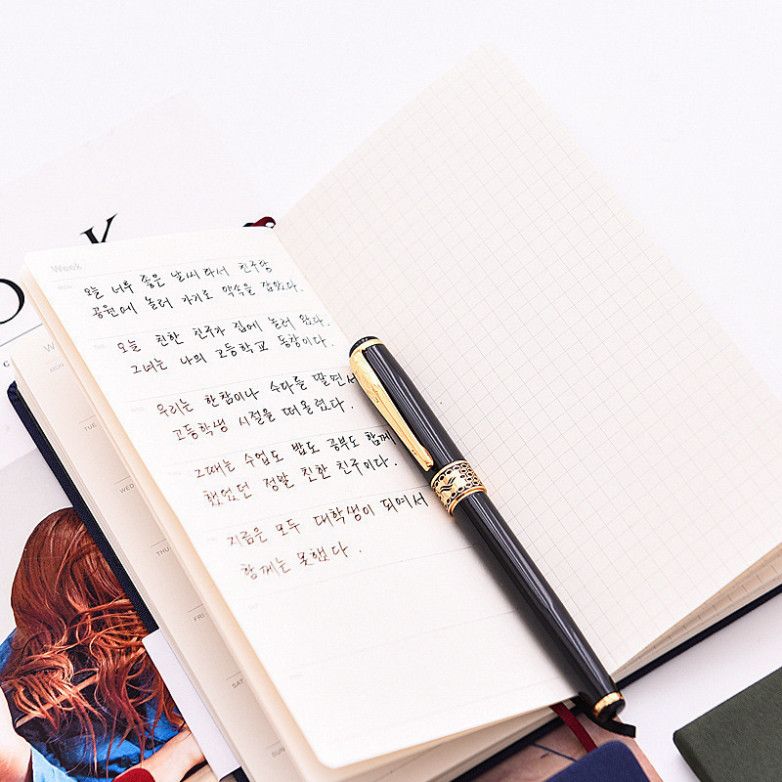 Week
오늘 너무 좋은 날씨라서 친구랑
공원에 놀러 가기로 약속을 잡았다.
오늘 친한 친구가 집에 놀러 왔다.
그녀는 나의 고등학교 동창이다.
우리는 한참이나 수다를 떨면서
고등학생 시절을 떠올렸다.
그때는 수업도 밥도 공부도 함께
했었던 정말 친한 친구이다.
지금은 모두 대학생이 되면서
함께는 못했다.
W
MON
TUE
WED
THU
FRI
SAT
SUN
K
O